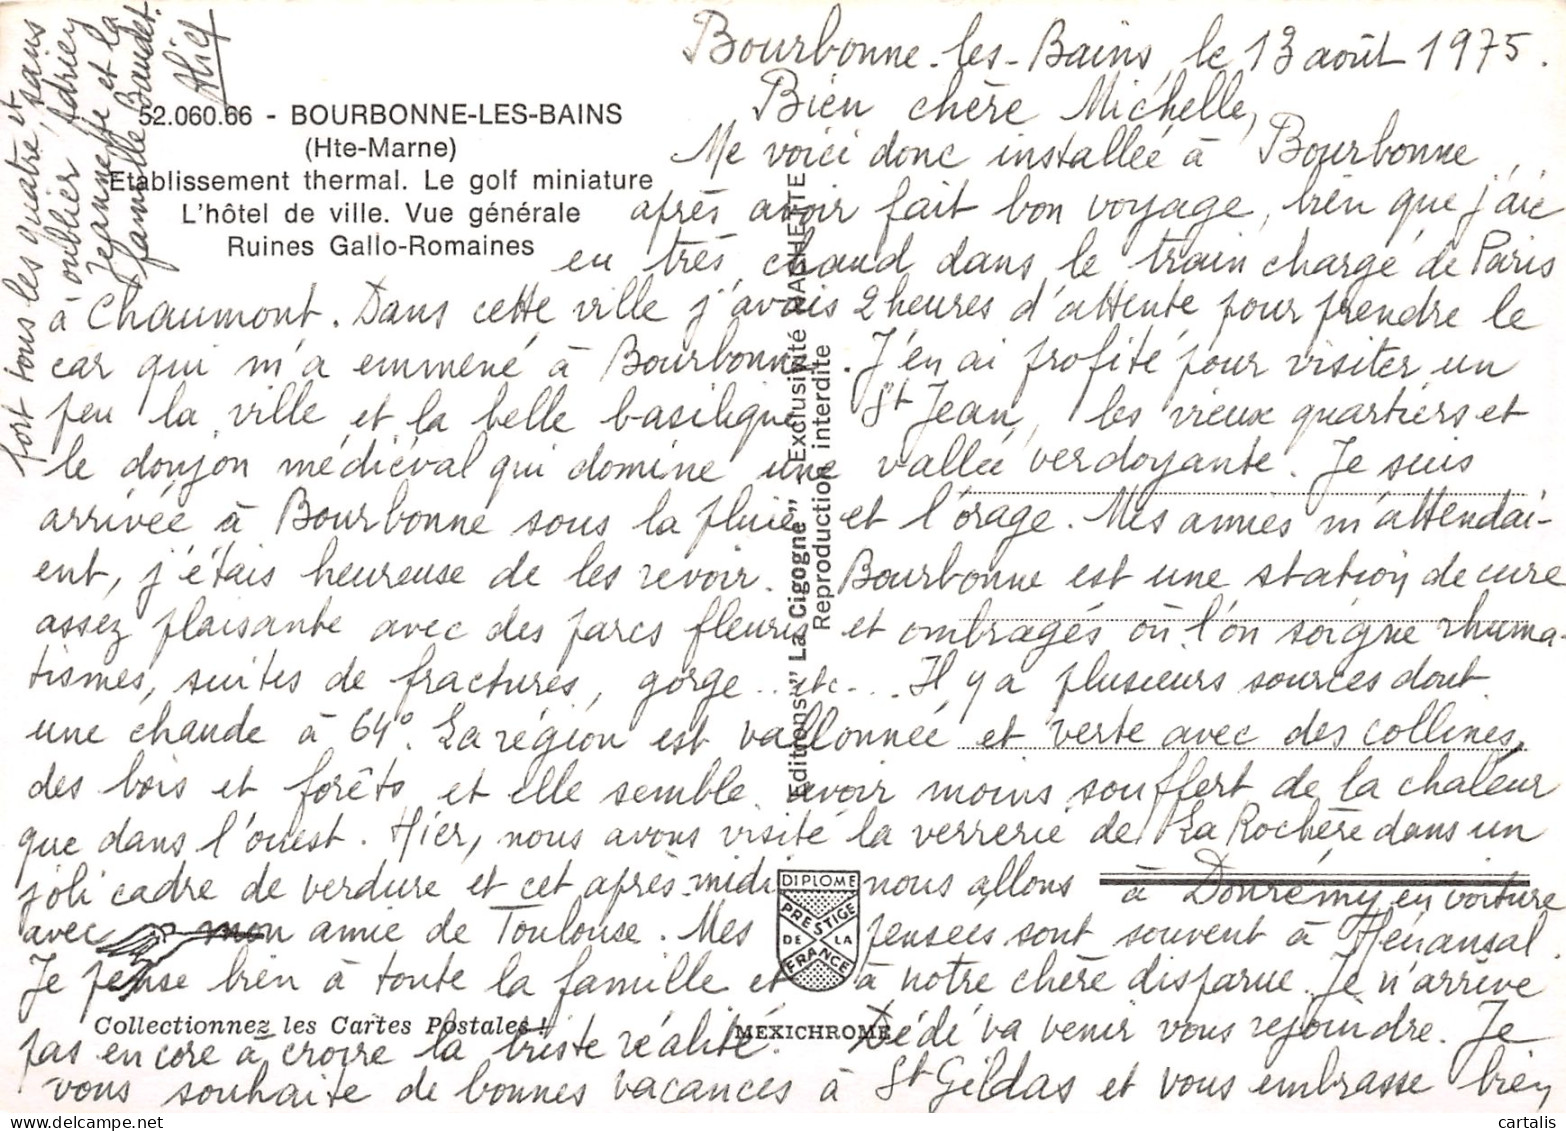 Bourbonne-les-Bains, le 13 août 1975.
Bien chère Michelle,
Me voici donc installée à Bourbonne,
après avoir fait bon voyage, bien que j'aie
eu très chaud dans le train chargé de Paris
à Chaumont. Dans cette ville j'avais 2 heures d'attente pour prendre le
car qui m'a emmené à Bourbonne. J'en ai profité pour visiter un
peu la ville et la belle basilique St Jean, les vieux quartiers et
le donjon médiéval qui domine une vallée verdoyante. Je suis
arrivée à Bourbonne sous la pluie et l'orage. Mes amies m'attendai-
ent, j'étais heureuse de les revoir. Bourbonne est une station de cure
assez plaisante avec des parcs fleuris et ombragés où l'on soigne rhuma-
tismes, suites de fractures, gorge.. etc... Il y a plusieurs sources dont
une chaude à 64°. La région est vallonnée et verte avec des collines,
des bois et forêts et elle semble avoir moins souffert de la chaleur
que dans l'ouest. Hier, nous avons visité la verrerie de La Rochère dans un
joli cadre de verdure et cet après-midi nous allons à Domrémy en voiture
avec mon amie de Toulouse. Mes pensées sont souvent à Hénansal.
Je pense bien à toute la famille et à notre chère disparue. Je n'arrive
pas encore à croire la triste réalité. Dédé va venir vous rejoindre. Je
vous souhaite de bonnes vacances à St Gildas et vous embrasse bien
fort tous les quatre, sans
oublier Adrien et
Jeannette et la
famille Baudet.
Alice
52.060.66 - BOURBONNE-LES-BAINS
(Hte-Marne)
Etablissement thermal. Le golf miniature
L'hôtel de ville. Vue générale
Ruines Gallo-Romaines
Editions "La Cigogne" - Exclusivité HACHETTE
Reproduction interdite
DIPLOME
PRESTIGE
DE LA
FRANCE
Collectionnez les Cartes Postales !
MEXICHROME
© cartalis